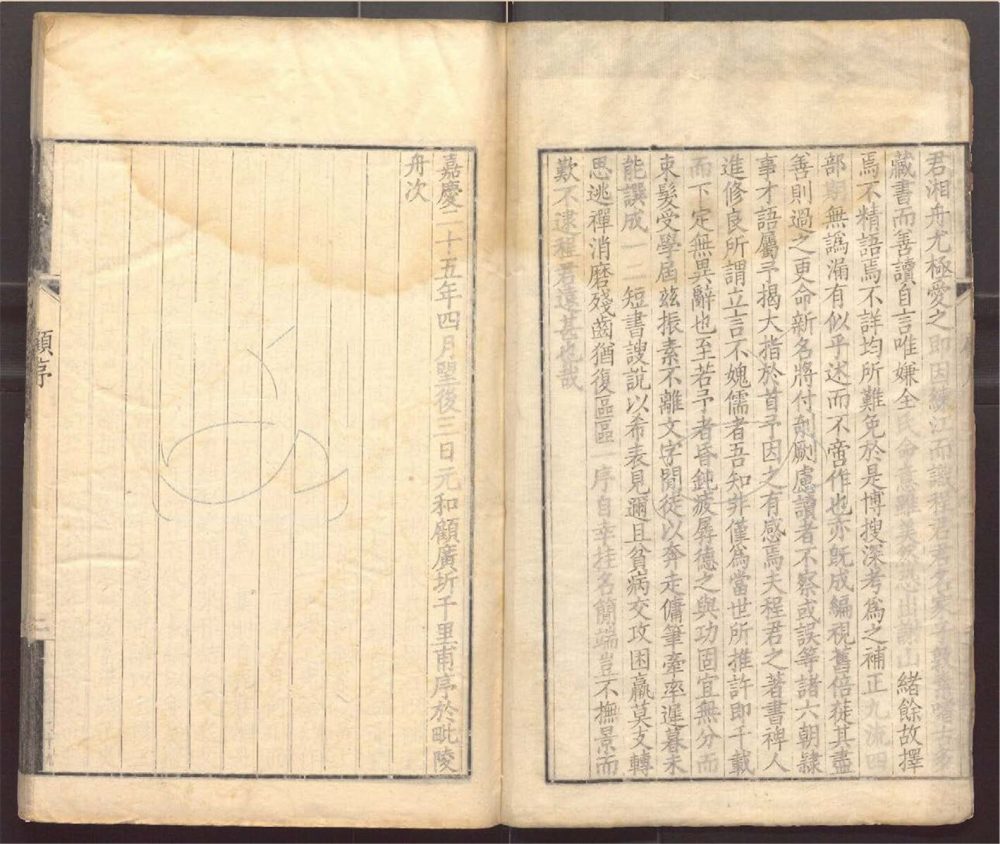 君湘舟尤極愛之即因練江而識程君君名
藏書而善讀自言唯嫌全氏命意雖美然
山緒餘故擇
焉不精語焉不詳均所難免於是博搜深考爲之補正九流四
部期無譌漏有似乎述而不啻作也亦旣成編視舊倍蓰其盡
善則過之更命新名將付剞劂慮讀者不察或誤等諸六朝隸
事才語屬予揭大指於首予因之有感焉夫程君之著書裨人
進修良所謂立言不媿儒者吾知非僅爲當世所推許即千載
而下定無異辭也至若予者昏鈍疲孱德之與功固宜無分而
束髮受學屆茲振素不離文字閒徒以奔走傭筆牽率遲暮未
能譔成一二短書謏説以希表見邇且貧病交攻困羸莫支轉
思逃禪消磨殘齒猶復區區一序自幸挂名簡端豈不撫景而
歎不逮程君遠甚也哉
嘉慶二十五年四月朢後三日元和顧廣圻千里甫序於毗陵
舟次
顧序
二